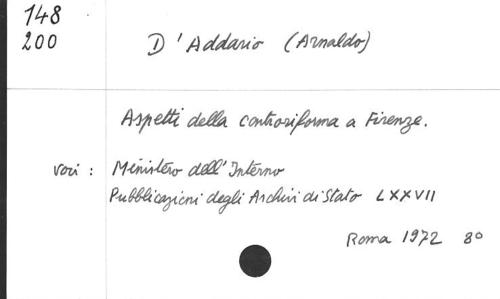 148
200
D'Addario (Arnaldo)
Aspetti della controriforma a Firenze.
voci : Ministero dell'Interno
Pubblicazioni degli Archivi di Stato LXXVII
Roma 1972 8º